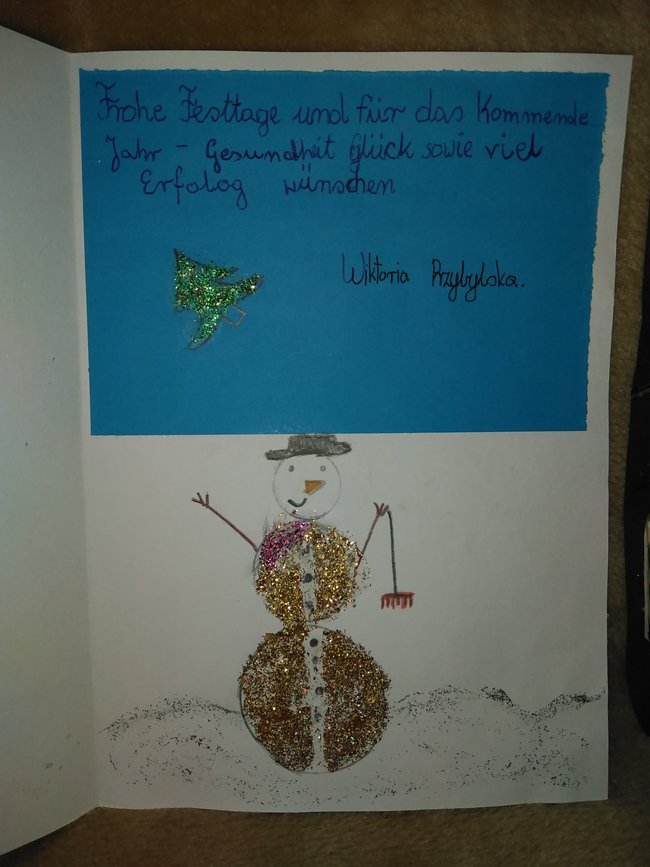 Frohe Festtage und für das Kommende
Jahr - Gesundheit Glück sowie viel
Erfolog wünschen
Wiktoria Przybylska.